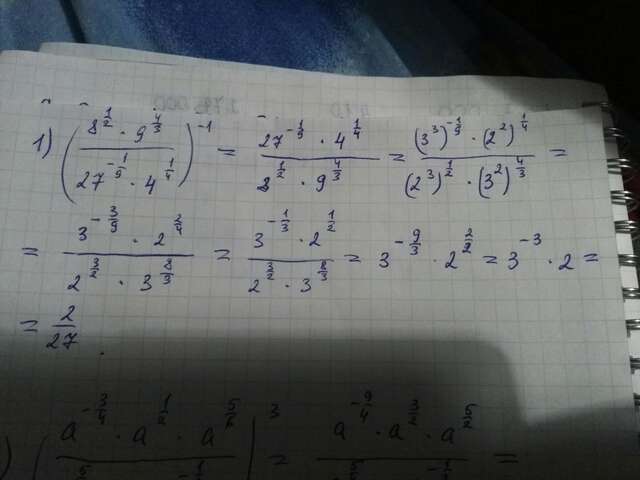 1) (8^{1/2} · 9^{4/3} / 27^{-1/9} · 4^{1/4})^{-1} = 27^{-1/9} · 4^{1/4} / 8^{1/2} · 9^{4/3} = (3^3)^{-1/9} · (2^2)^{1/4} / (2^3)^{1/2} · (3^2)^{4/3} =
= 3^{-3/9} · 2^{2/4} / 2^{3/2} · 3^{8/3} = 3^{-1/3} · 2^{1/2} / 2^{3/2} · 3^{8/3} = 3^{-9/3} · 2^{2/2} = 3^{-3} · 2 =
= 2/27 .
) (a^{-3/4} · a^{1/2} · a^{5/6} / )^3 = a^{-9/4} · a^{3/2} · a^{5/2} / =